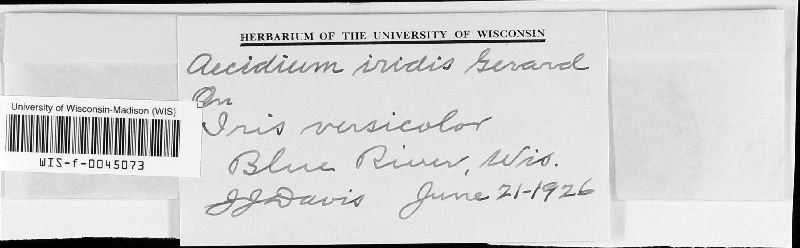 HERBARIUM OF THE UNIVERSITY OF WISCONSIN
Aecidium iridis Gerard
On
Iris versicolor
Blue River, Wis.
JJ Davis June 21-1926
University of Wisconsin-Madison (WIS)
WIS-f-0045073